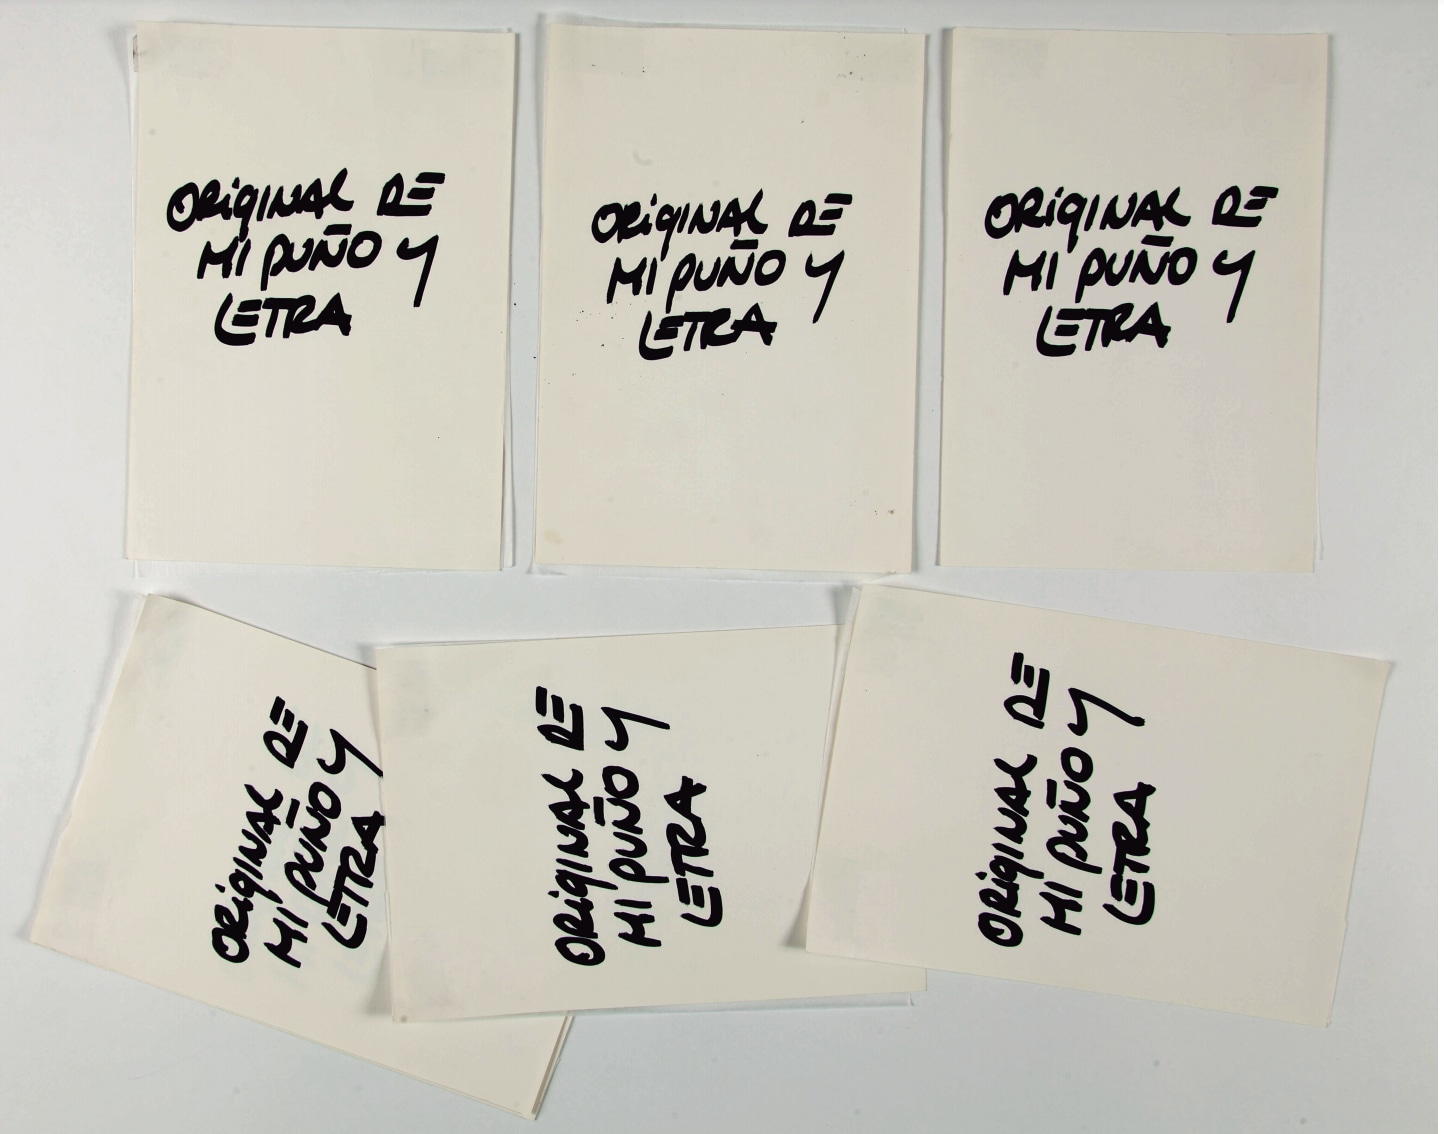 ORIGINAL DE
MI PUÑO Y
LETRA
ORIGINAL DE
MI PUÑO Y
LETRA
ORIGINAL DE
MI PUÑO Y
LETRA
ORIGINAL DE
MI PUÑO Y
LETRA
ORIGINAL DE
MI PUÑO Y
LETRA
ORIGINAL DE
MI PUÑO Y
LETRA